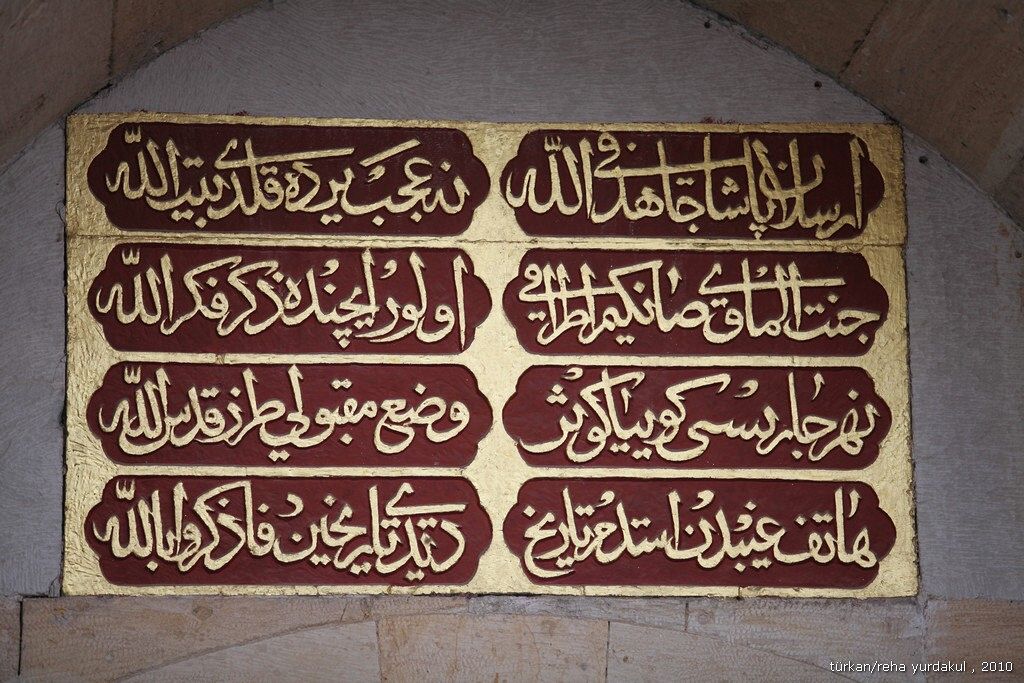 ارسلان پاشا جاهد في الله
نه عجب يرده قلدى بيت الله
جنت المأوى صانكيم اطرافى
اولور ايچنده ذكر فكر الله
نهر جار كوييا كوثر
وضع مقبولي طرز قدس الله
هاتف غيبدن استدم تاريخ
ديدى تاريخين فاذكروا بالله
türkan/reha yurdakul , 2010